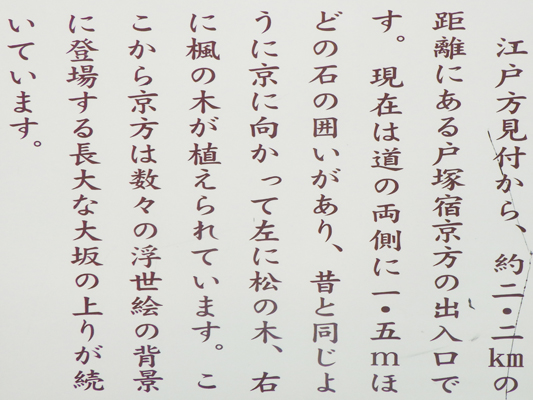 江戸方見付から、約二・二kmの
距離にある戸塚宿京方の出入口で
す。現在は道の両側に一・五mほ
どの石の囲いがあり、昔と同じよ
うに京に向かって左に松の木、右
に楓の木が植えられています。こ
こから京方は数々の浮世絵の背景
に登場する長大な大坂の上りが続
いています。